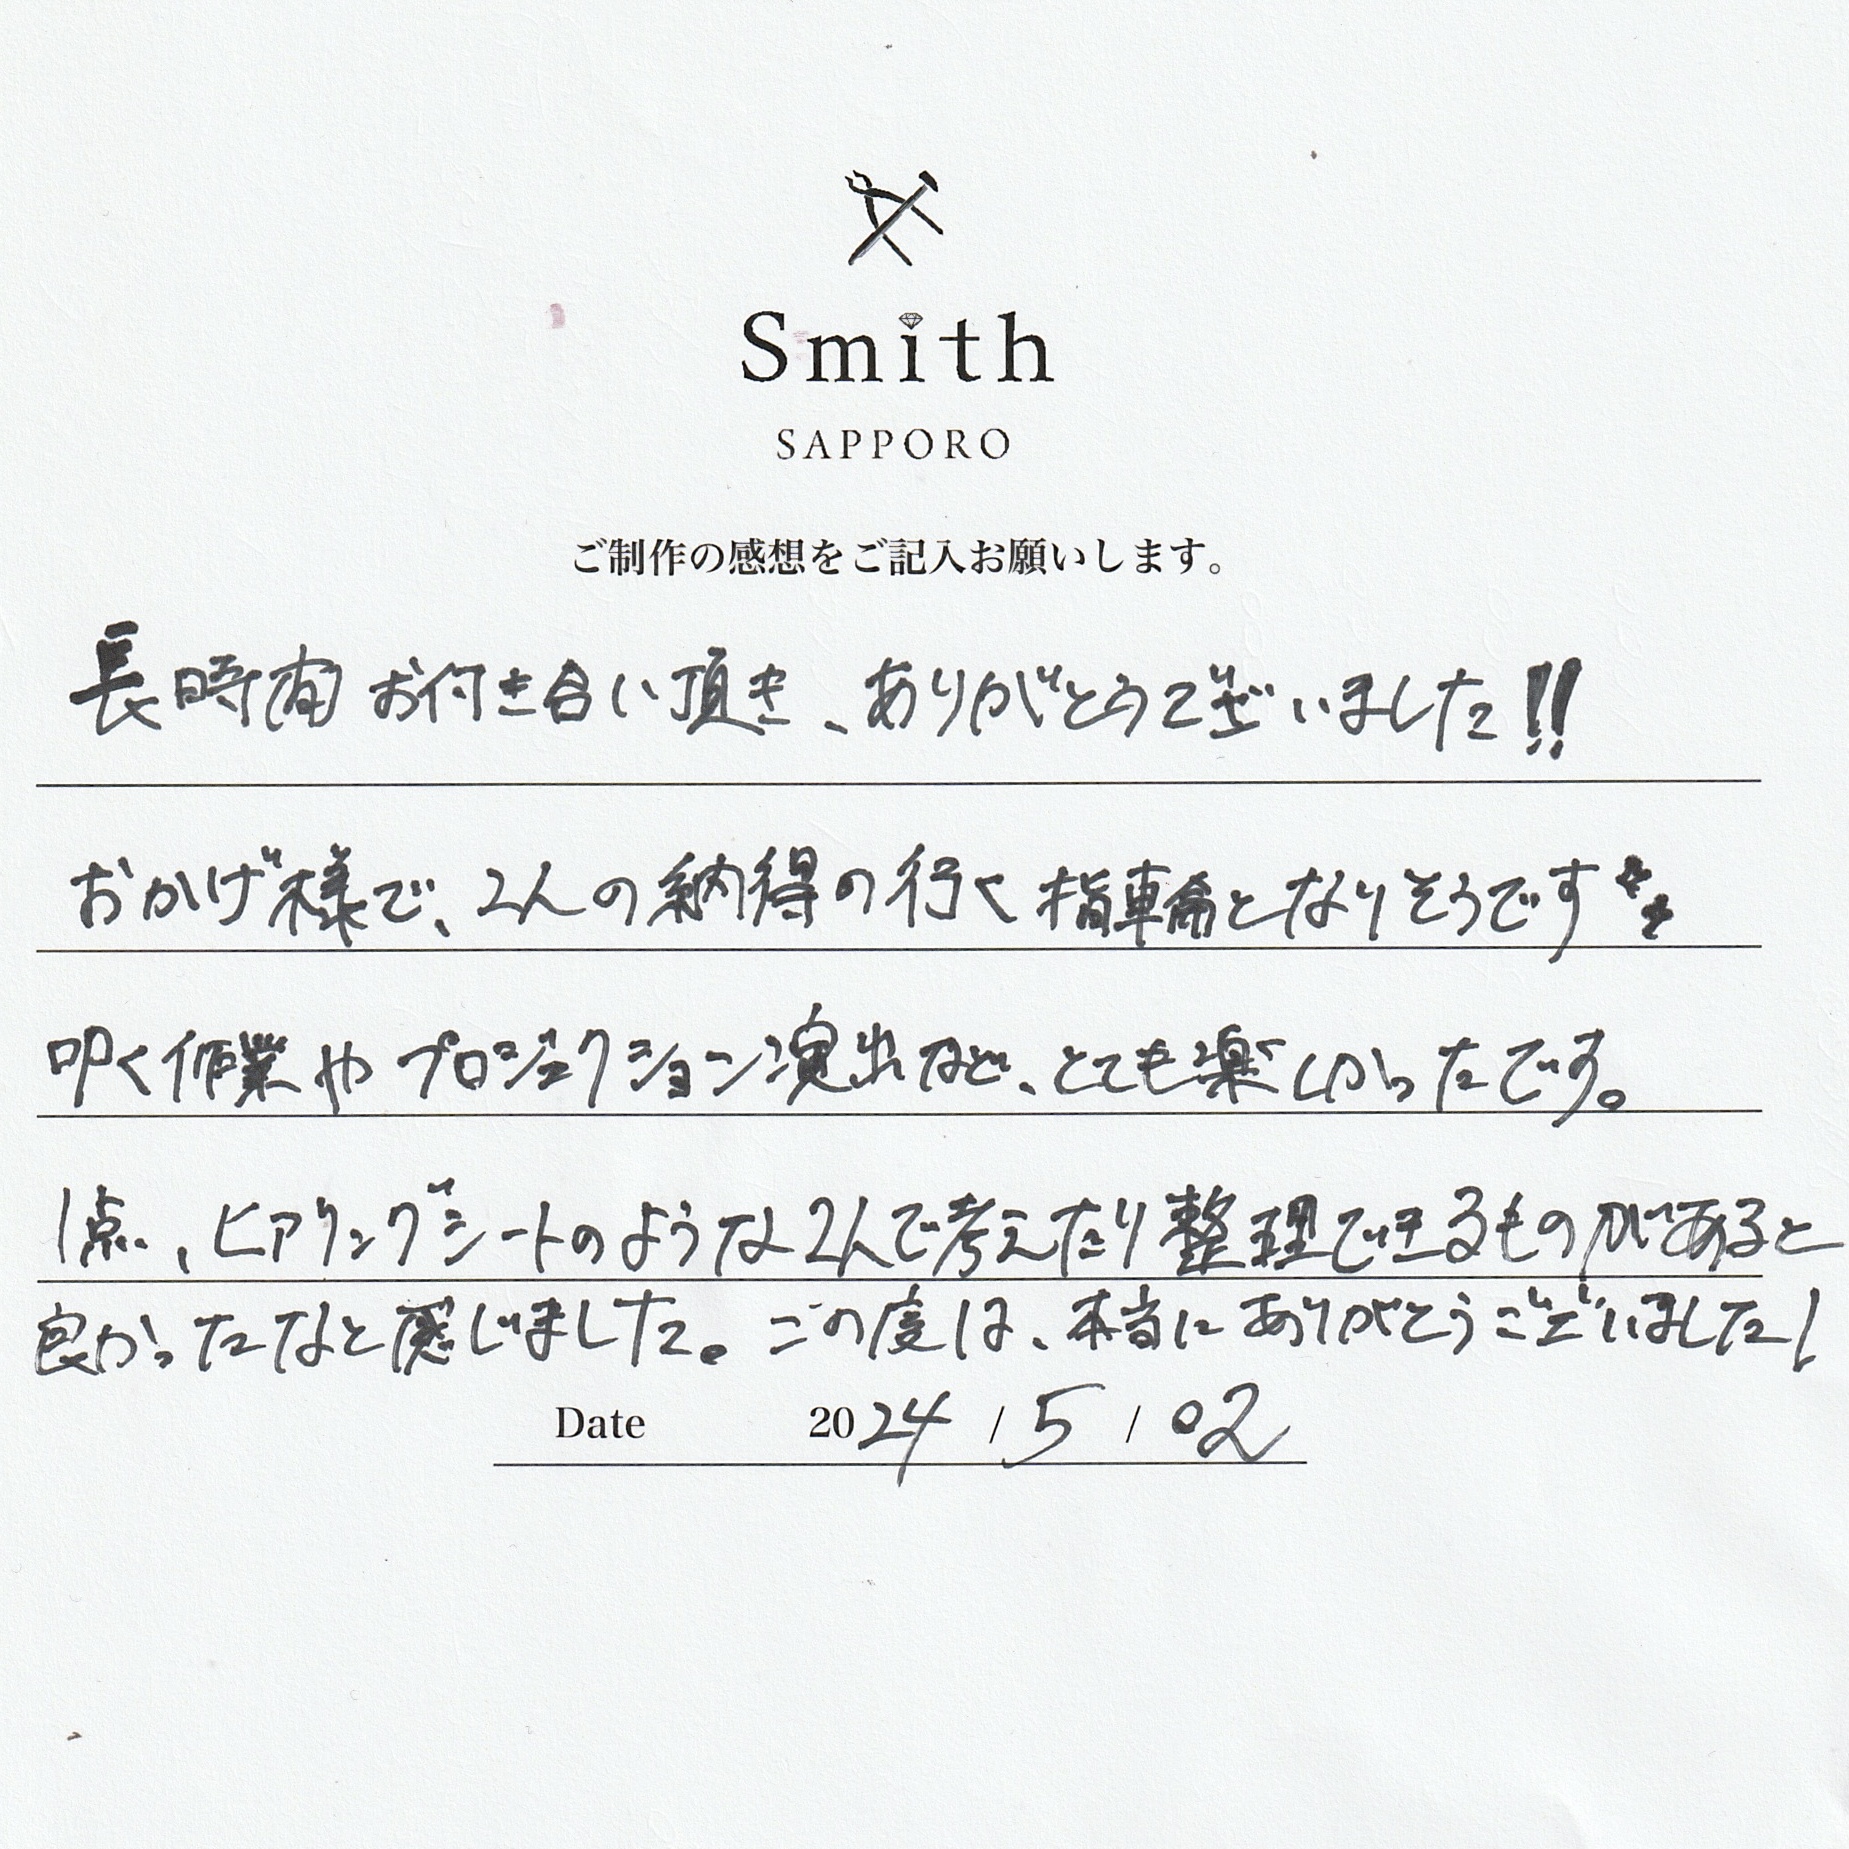 Smith
SAPPORO
ご制作の感想をご記入お願いします。
長時間お付き合い頂き、ありがとうございました!!
おかげ様で、2人の納得の行く指輪となりそうです
叩く作業やプロジェクション演出など、とても楽しかったです。
1点、ヒアリングシートのような2人で考えたり整理できるものがあると
良かったなと感じました。この度は、本当にありがとうございました!
Date 2024 / 5 / 02